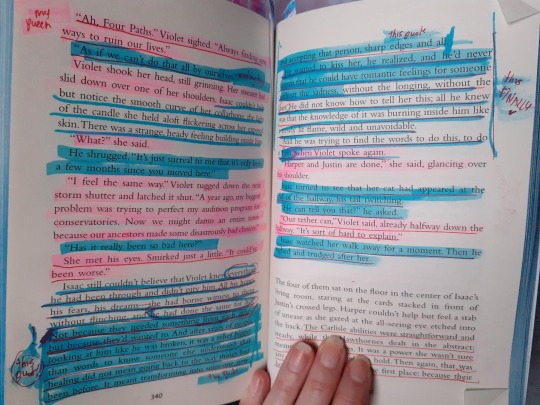 my queen
"Ah, Four Paths." Violet sighed. "Always finding new
ways to ruin our lives."
"As if we can't do that all by ourselves,"
Violet shook her head, still grinning. Her sweater had
slid down over one of her shoulders. Isaac couldn't help
but notice the smooth curve of her collarbone, the light
of the candle she held aloft flickering across her exposed
skin. There was a strange, heady feeling building inside him.
"What?" she said.
He shrugged. "It's just surreal to me that it's only been
a few months since you moved here."
"I feel the same way." Violet tugged down the next
storm shutter and latched it shut. "A year ago, my biggest
problem was trying to perfect my audition program for
conservatories. Now we might damn an entire town
because our ancestors made some disastrously bad choices."
"Has it really been so bad here?"
She met his eyes. Smirked just a little. "It could've
been worse."
Isaac still couldn't believe that Violet knew everything
he had been through and didn't pity him. All his hopes,
his fears, his dreams—she had borne witness to them
without flinching, and he had done the same for her.
Not because they needed something
but because they'd wanted to. And after years of people
looking at him like he was broken, it was a relief
than words to know someone else who
healing did not mean going back to
been before. It meant transforming into
this quote
340
this quote
accepting that person, sharp edges and all.
wanted to kiss her, he realized, and he'd never
that he could have romantic feelings for someone
without the sadness, without the longing, without the
He did not know how to tell her this; all he knew
was that the knowledge of it was burning inside him like
a flame, wild and unavoidable.
And he was trying to find the words to do this, to do
when Violet spoke again.
"Harper and Justin are done," she said, glancing over
his shoulder.
Isaac turned to see that her cat had appeared at the
of the hallway, his tail twitching.
"He can tell you that?" he asked.
"Our tether can," Violet said, already halfway down the
hallway. "It's sort of hard to explain."
Isaac watched her walk away for a moment. Then he
and trudged after her.
The four of them sat on the floor in the center of Isaac's
living room, staring at the cards stacked in front of
Justin's crossed legs. Harper couldn't help but feel a stab
of unease as she gazed at the all-seeing eye etched into
the back. The Carlisle abilities were straightforward and
ready, while the Hawthornes dealt in the abstract;
It was a power she wasn't sure
hold. Then again, that was
the first place: because their